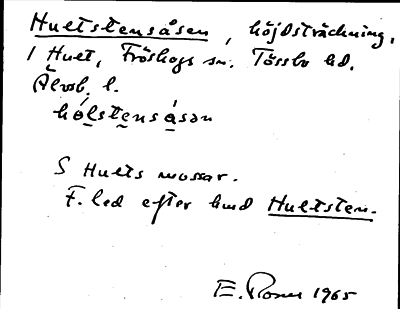 Hultstensåsen, höjdsträckning,
i Hult, Fröskogs sn. Tössbo hd.
Älvsb. l.
hólstensásan
S Hults mossar.
F. led efter bmd Hultsten.
E. Rosen 1965